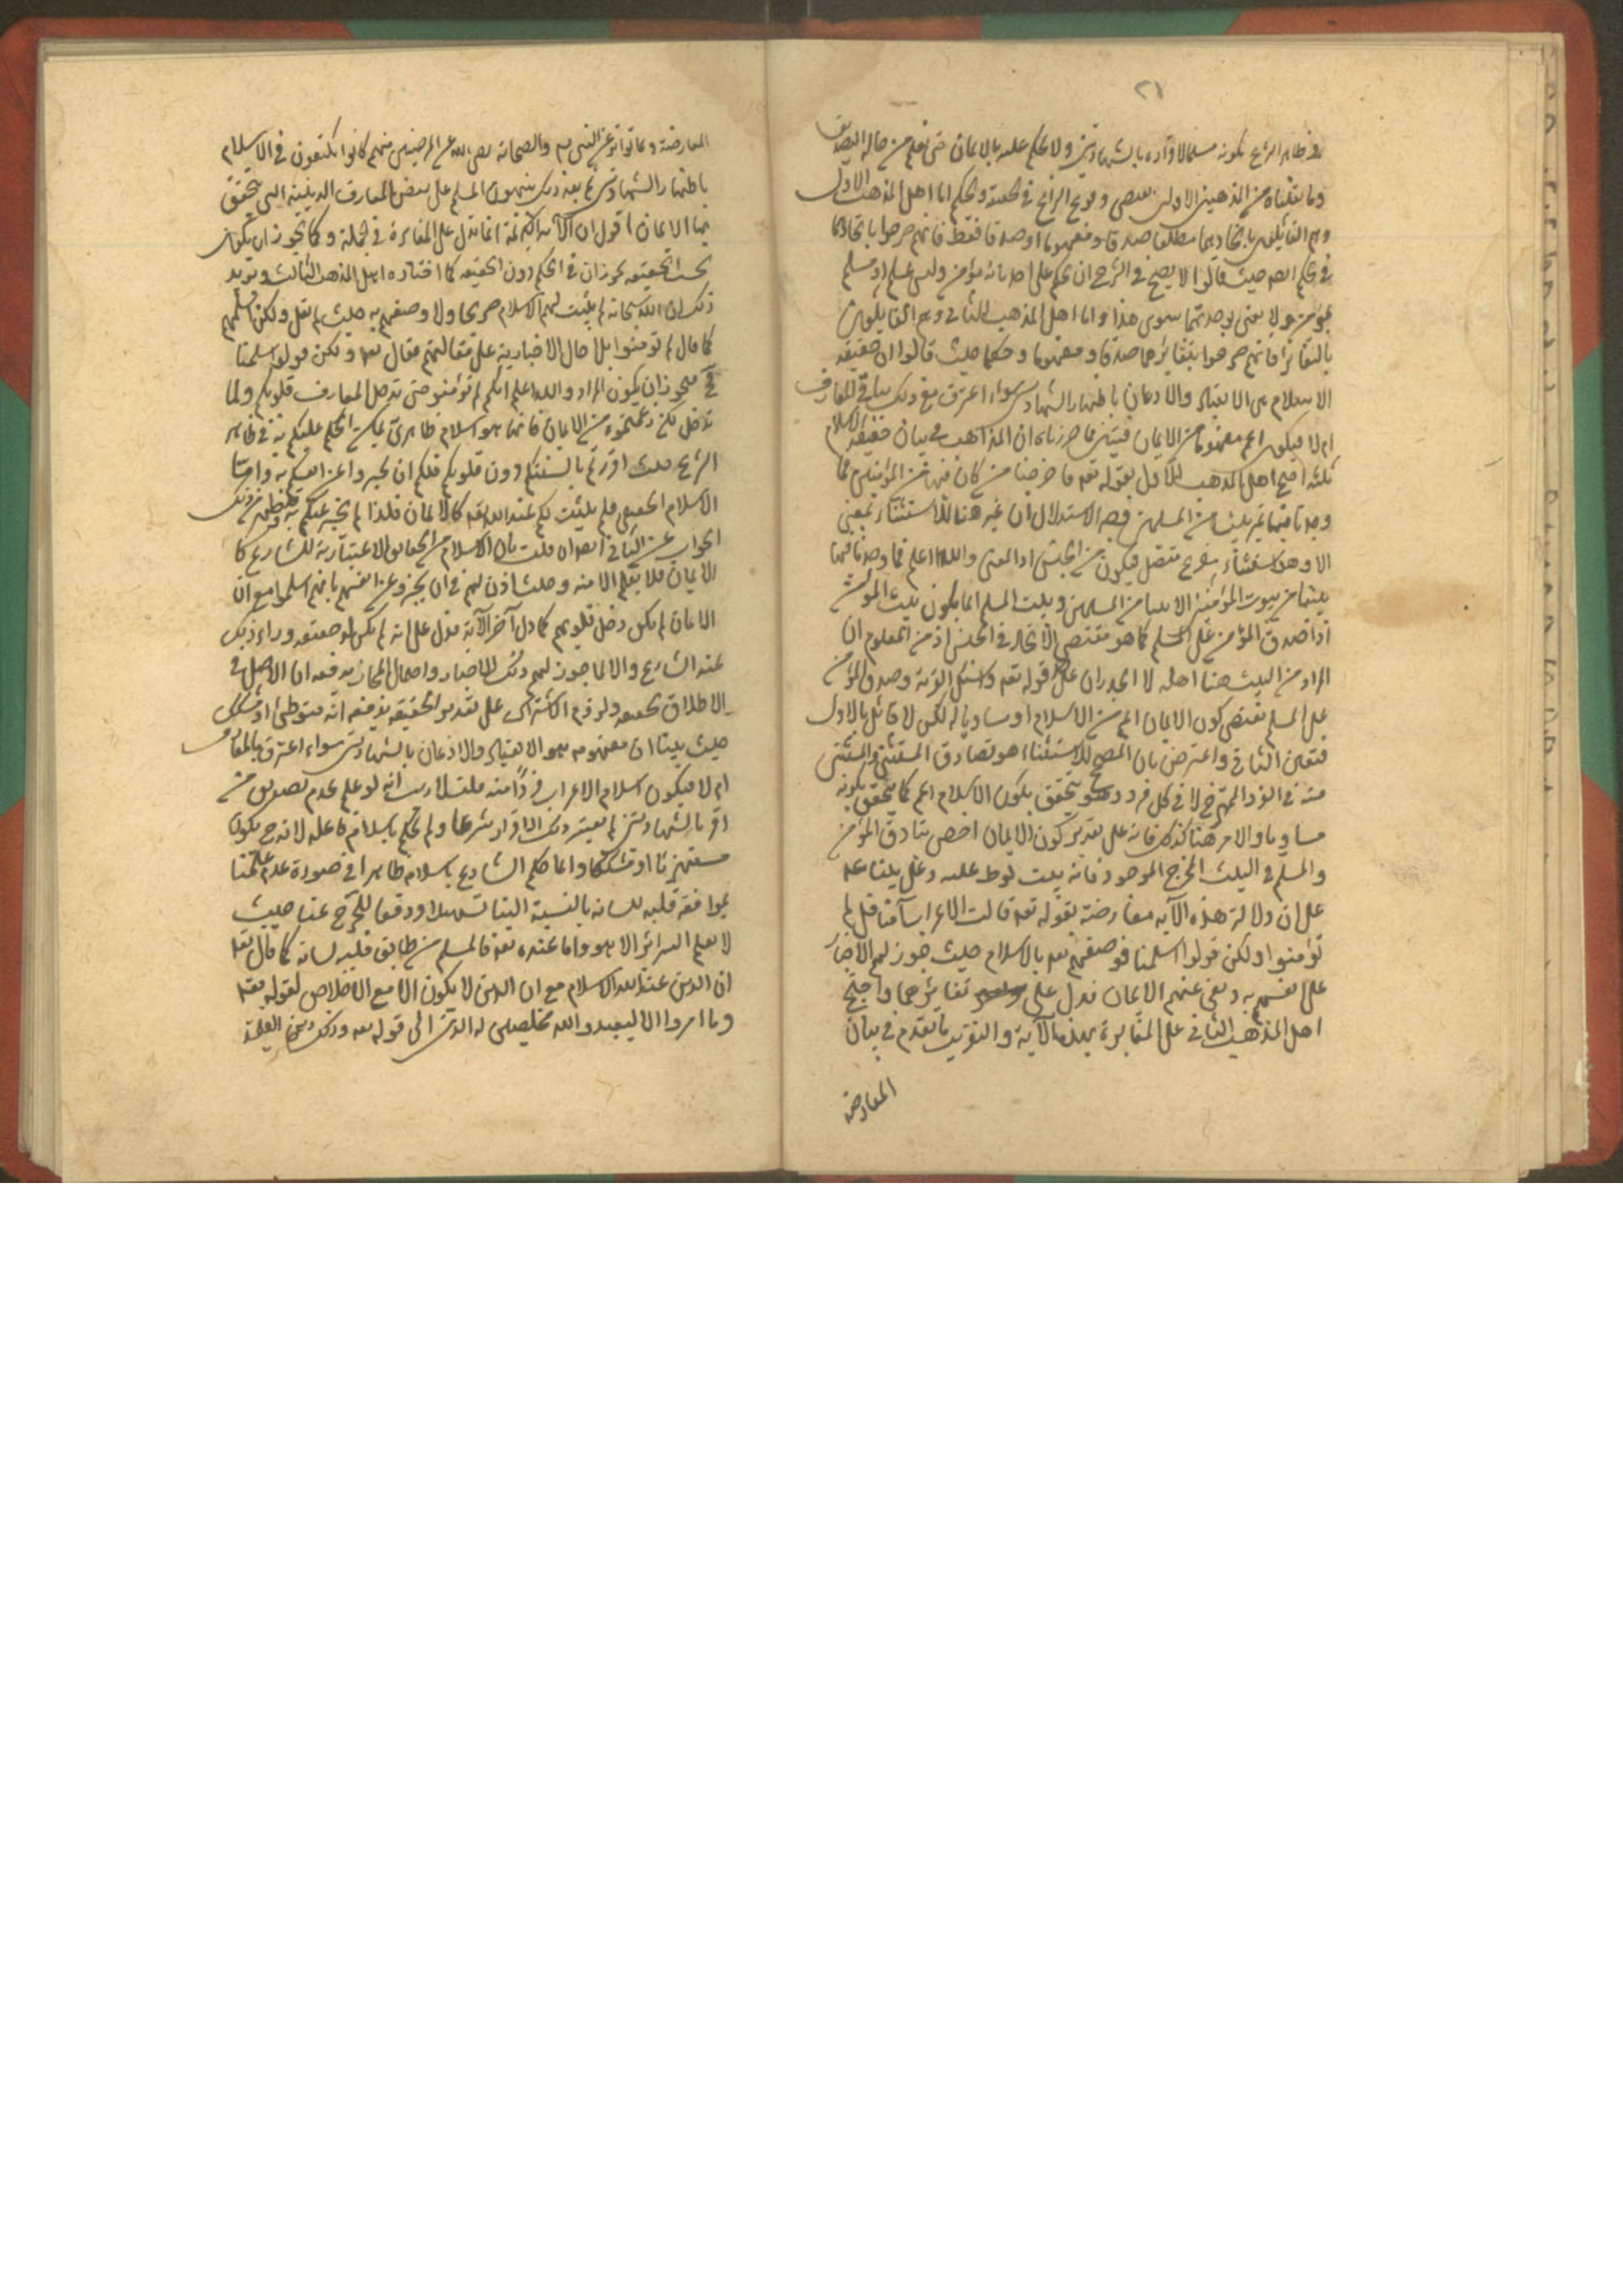 ٢١
في ظاهر الشرع بكونه مسلما لاقراره بالشهادتين ولا يحكم عليه بالايمان حتى يعلم من حاله التصديق
وما نقلناه من المذهبين الاولين يقتضي وقوع النزاع في الحقيقة والحكم اما اهل المذهب الاول
وهم القائلون باتحادهما مطلقا صدقا ومفهوما او صدقا فقط فانهم صرحوا باتحادهما
في الحكم ايضا حيث قالوا لا يصح في الشرع ان يحكم على احد بانه مؤمن وليس بمسلم او مسلم
بمؤمن ولا نعني بوحدتهما سوى هذا واما اهل المذهب الثاني وهم القائلون
بالتغاير فانهم صرحوا بتغايرهما صدقا ومفهوما وحكما حيث قالوا ان حقيقة
الاسلام هي الانقياد والاذعان باظهار الشهادتين سواء اعترف مع ذلك بباقي المعارف
ام لا فيكون اعم مفهوما من الايمان فتبين مما حررناه ان المذاهب في بيان حقيقة الاسلام
ثلثة احتج اهل المذهب الاول بقوله تعه فاخرجنا من كان فيها من المؤمنين فما
وجدنا فيها غير بيت من المسلمين وجه الاستدلال ان غير هنا للاستثناء بمعنى
الا وهو استثناء مفرغ متصل فيكون من الجنس اذ المعنى والله اعلم فما وجدنا فيها
بيتا من بيوت المؤمنين الا بيتا من المسلمين وبيت المسلم انما يكون بيت المؤمن
اذا صدق المؤمن على المسلم كما هو مقتضى الاتحاد في الجنس اذ من المعلوم ان
المراد من البيت هنا اهله لا الجدران على حد قوله تعه واسئل القرية وصدق المؤمن
على المسلم يقتضي كون الايمان اعم من الاسلام او مساويا له لكن لا قائل بالاول
فتعين الثاني واعترض بان المصحح للاستثناء هو تصادق المستثنى والمستثنى
منه في الفرد المخرج لا في كل فرد وهو يتحقق بكون الاسلام اعم كما يتحقق بكونه
مساويا والامر هنا كذلك فانه على تقدير كون الايمان اخص يتصادق المؤمن
والمسلم في البيت المخرج الموجود فانه بيت لوط عليه
على ان دلالة هذه الآية معارضة بقوله تعه قالت الاعراب آمنا قل لم
تؤمنوا ولكن قولوا اسلمنا فوصفهم تعه بالاسلام حيث جوز لهم الاخبار
على انفسهم به ونفى عنهم الايمان فدل على تغايرهما واحتج
اهل المذهب الثاني على المغايرة بهذه الآية والتقريب ما تقدم في بيان
المعارضة
المعارضة وبما تواتر عن النبي ص والصحابة رضي الله عن المرضيين منهم كانوا يكتفون في الاسلام
باظهار الشهادتين ثم بعد ذلك ينبهون المسلم على بعض المعارف الدينية التي يتحقق
بها الايمان اقول ان الآية الكريمة انما تدل على المغايرة في الجملة وكما يجوز ان يكون
بحسب الحقيقة يجوز ان في الحكم دون الحقيقة كما اختاره اهل المذهب الثالث ويؤيد
ذلك ان الله سبحانه لم يثبت لهم الاسلام صريحا ولا وصفهم به حيث لم يقل ولكن اسلمتم
كما قال لم تؤمنوا بل احال الاخبار به على مقالتهم فقال تعه ولكن قولوا اسلمنا
فح يجوز ان يكون المراد والله اعلم انكم لم تؤمنوا حتى تدخل المعارف قلوبكم ولما
تدخل لكن زعمتموه من الايمان فانما هو اسلام ظاهري يمكن الحكم عليكم به في ظاهر
الشرع حيث اقررتم بالسنتكم دون قلوبكم فلكم ان تخبروا عن انفسكم به واما
الاسلام الحقيقي فلم يثبت لكم عند الله تعه كالايمان فلذا لم يخبر عنكم به وقد ظهر من ذلك
الجواب عن الثاني ايضا ان قلت بان الاسلام من الحقائق الاعتبارية للشارع كما
الايمان فلا يعلم الا منه وحيث اذن لهم في ان يخبروا عن انفسهم بانهم اسلموا مع ان
الايمان لم يكن دخل قلوبهم كما دل آخر الآية فدل على انه لم يكن له حقيقة وراء ذلك
عند الشارع والا لما جوز لهم ذلك الاخبار واحتمال المجاز يدفعه ان الاصل في
الاطلاق الحقيقة ولزوم الاشتراك على تقدير الحقيقة يدفعه انه متواطئ او مشكك
حيث بينا ان مفهومه هو الانقياد والاذعان بالشهادتين سواء اعترف بالمعارف
ام لا فيكون اسلام الاعراب فردا منه قلت لا ريب انه لو علم عدم تصديق من
اقر بالشهادتين لم يعتبر ذلك الاقرار شرعا ولم يحكم باسلام فاعله لانه ح يكون
مستهزئا او مشككا وانما حكم الشارع باسلامه ظاهرا في صورة عدم علمنا
بموافقة قلبه للسانه بالنسبة الينا تسهيلا ودفعا للحرج عنا حيث
لا يعلم السرائر الا هو واما عنده تعه فالمسلم من طابق قلبه لسانه كما قال تعه
ان الدين عند الله الاسلام مع ان الدين لا يكون الا مع الاخلاص لقوله تعه
وما امروا الا ليعبدوا الله مخلصين له الدين الى قوله تعه وذلك دين القيمة